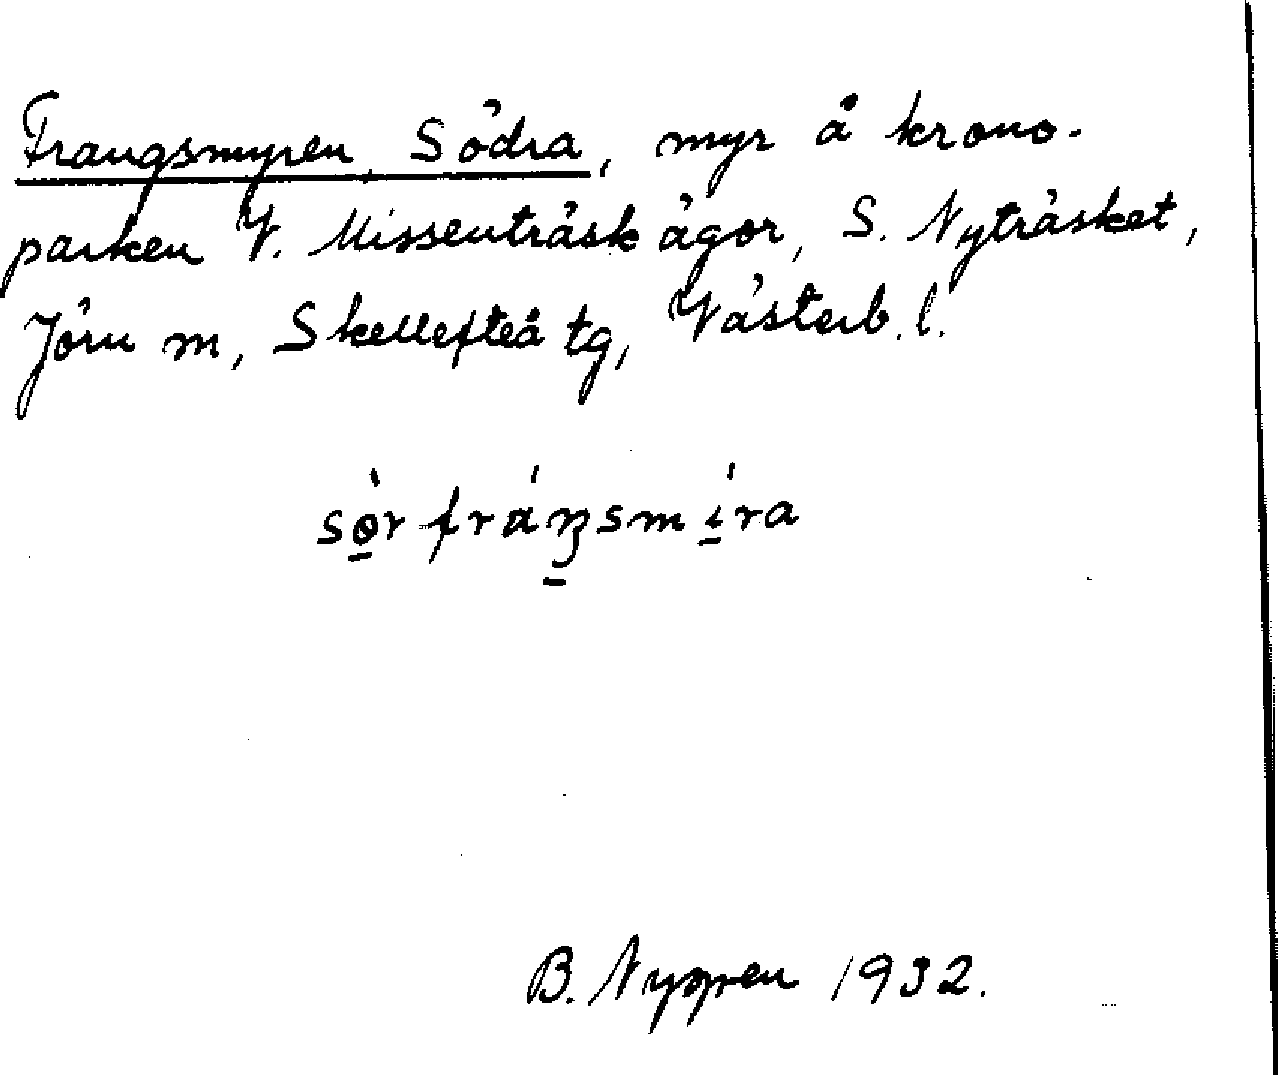 Frangsmyren, Södra, myr å krono-
parken V. Missenträsk ägor, S. Nyträsket,
Jörn m, Skellefteå tg, Västerb. l.
sø̱̀r fráŋ̱smí̱ra
B. Nyppen 1932.